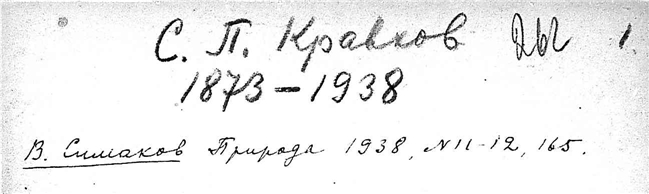 С. П. Кравков 1
1873 – 1938
В. Симаков Природа 1938, № 11-12, 165.